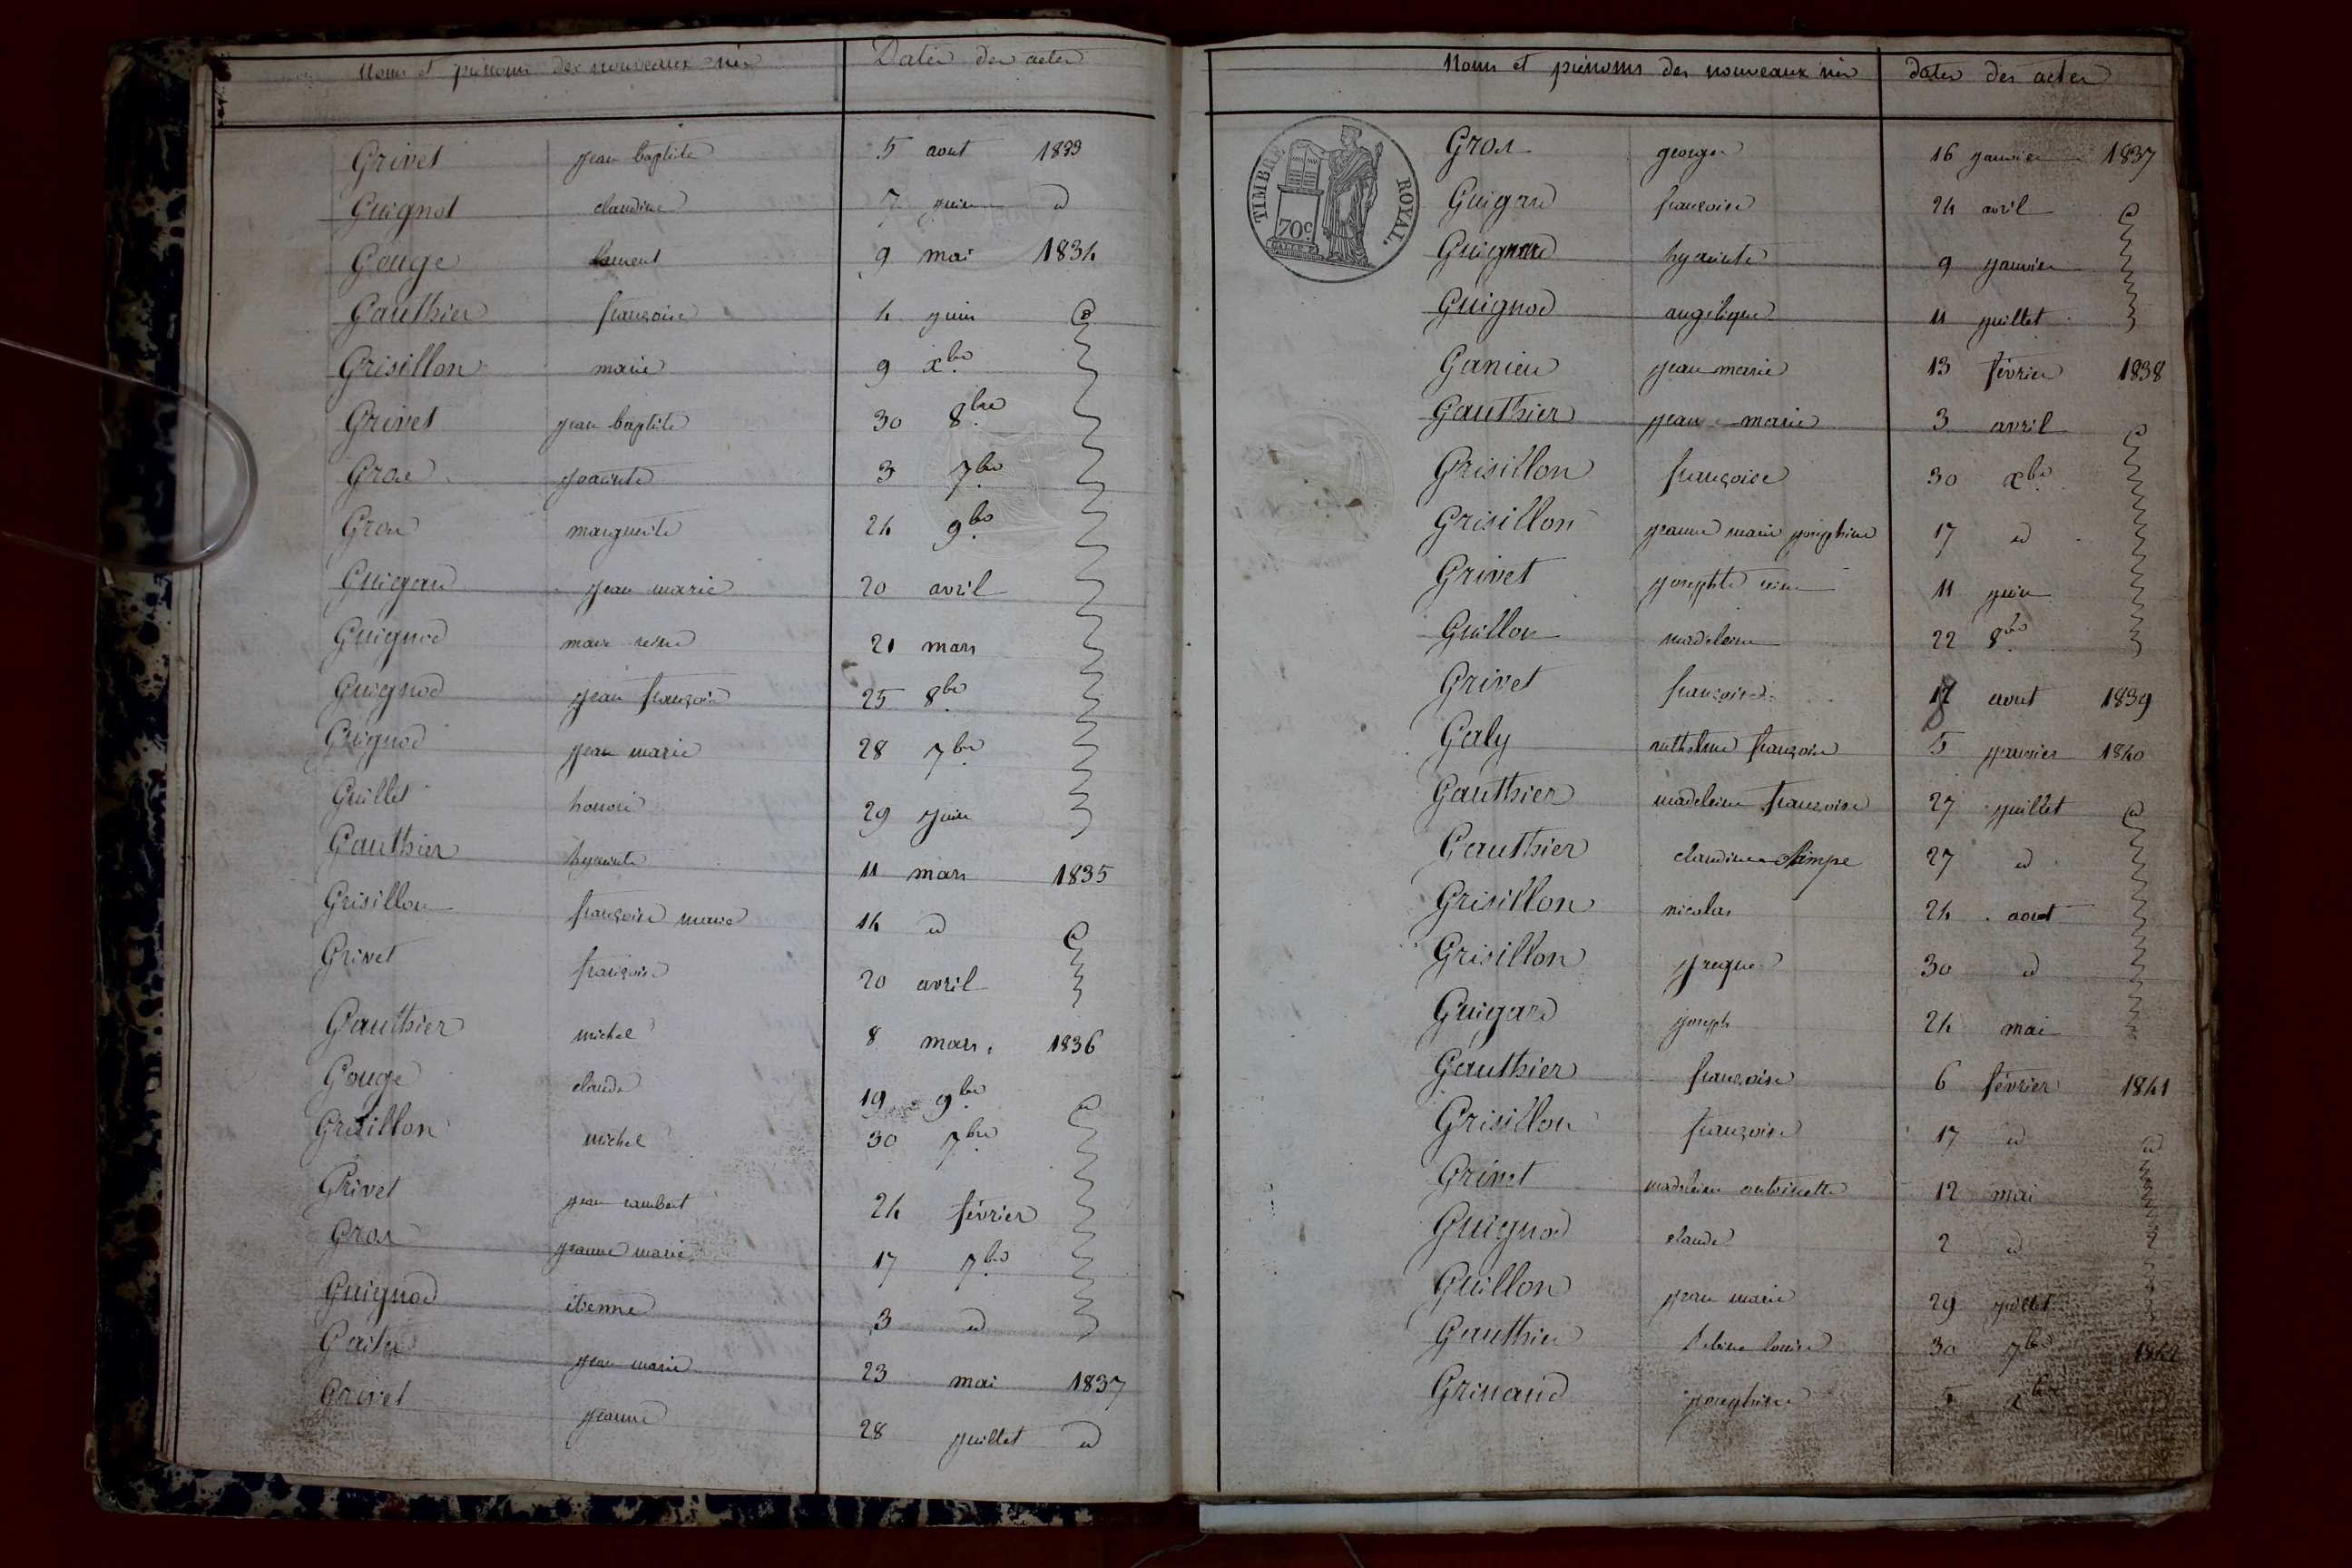 Noms et prénoms des nouveaux nés Dates des actes
Grivet jean baptiste 5 aout 1833
Guignot claudine 7 juin id
Gouge laurent 9 mai 1834
Gauthier françoise 4 juin id
Grisillon marie 9 xbre
Grivet jean baptiste 30 8bre
Gros 3 7bre
Gros marguerite 24 9bre
Guigard jean marie 20 avril
Guignod marie reine 21 mars
Guignod jean françois 25 8bre
Guignod jean marie 28 7bre
Guillet honoré 29 juin
Gauthier hyacinte 11 mars 1835
Grisillon françoise marie 14 id id
Grivet françoise 20 avril
Gauthier michel 8 mars 1836
Gouge claude 19 9bre id
Grisillon michel 30 7bre
Grivet jean rambert 24 février
Gros jeanne marie 17 7bre
Guignod étienne 3 id
jean marie 23 mai 1837
Grivet jeanne 28 juillet id
Noms et prénoms des nouveaux nés dates des actes
TIMBRE ROYAL.
70c.
Gros georges 16 janvier 1837
Guigard françoise 24 avril id
Guignard hyacinte 9 janvier
Guignod angélique 11 juillet
Ganieu jean marie 13 février 1838
Gauthier jean marie 3 avril id
Grisillon françoise 30 xbre
Grisillon jeanne marie joséphine 17 id
Grivet 11 juin
Guillon madeleine 22 8bre
Grivet françoise 17 aout 1839
Galy anthelme françois 5 janvier 1840
Gauthier madeleine françoise 27 juillet id
Gauthier claudine olimpe 27 id
Grisillon nicolas 24 aout
Grisillon 30 id
Guigard joseph 24 mai
Gauthier françoise 6 février 1841
Grisillon françoise 17 id id
Grivet madeleine antoinette 12 mai
Guignod claude 2 id
Guillon jean marie 29 juillet
Gauthier louise 30 7bre 1842
Grinand joséphine 5 xbre